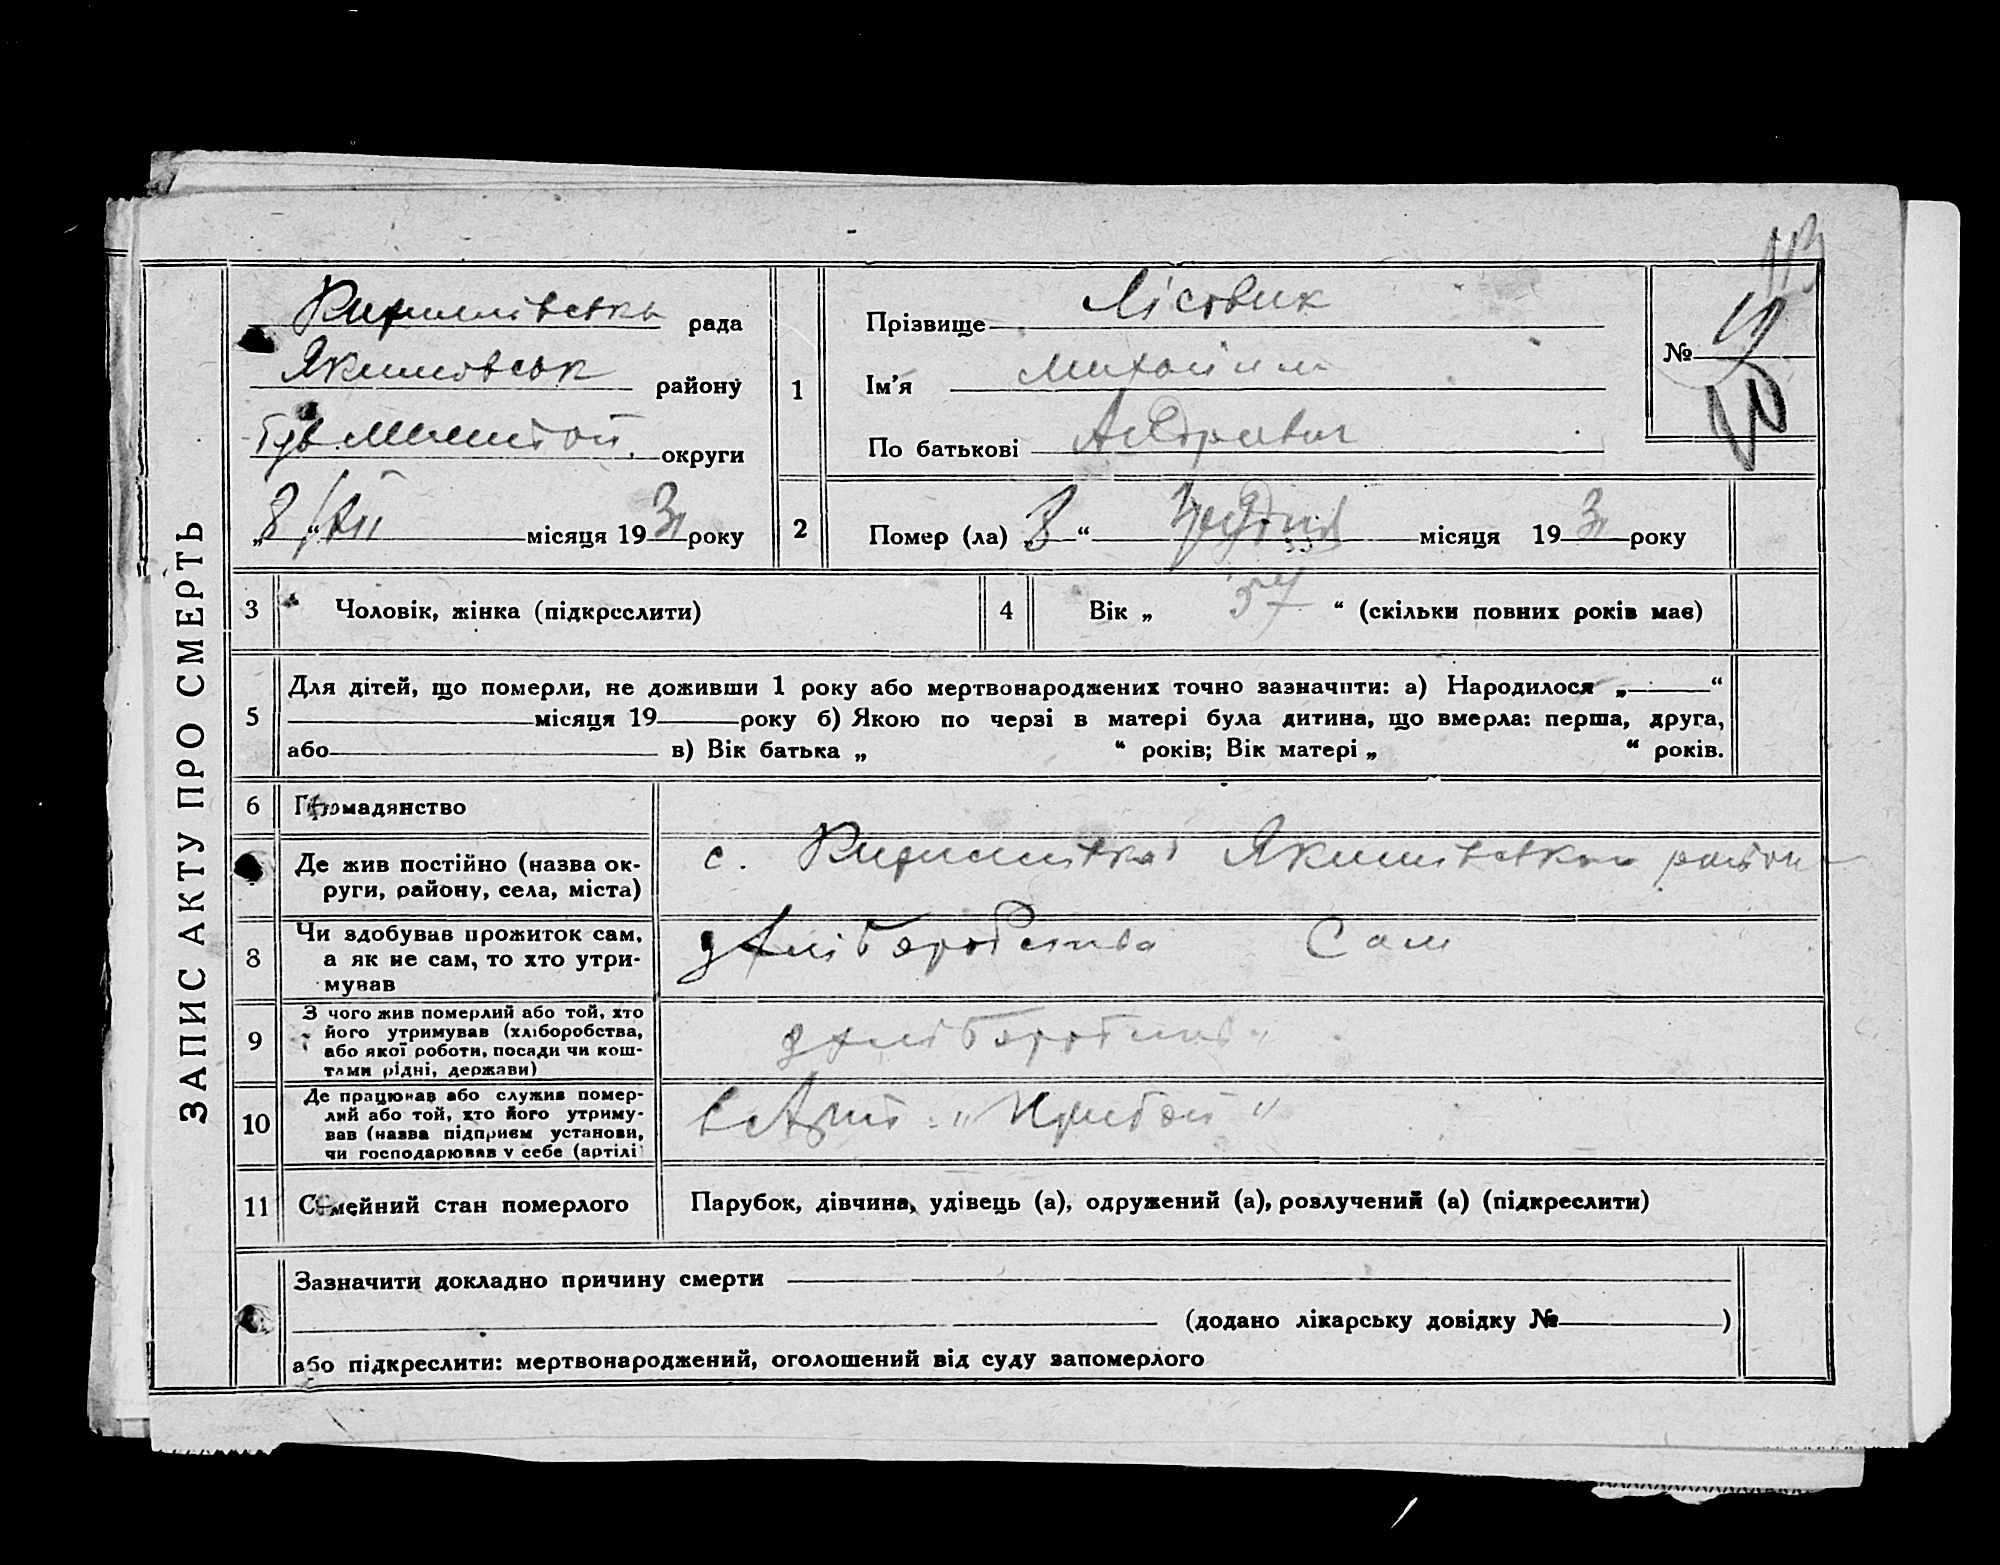 ЗАПИС АКТУ ПРО СМЕРТЬ
рада
Якимовськ району
округи
„8“ XII місяця 1931 року
1
Прізвище Лісовик
Ім'я Михайил
По батькові
№
2
Помер (ла) „8“ Грудня місяця 1931 року
3
Чоловік, жінка (підкреслити)
4
Вік „57“ (скільки повних років має)
5
Для дітей, що померли, не доживши 1 року або мертвонароджених точно зазначити: а) Народилося „ “
місяця 19 року б) Якою по черзі в матері була дитина, що вмерла: перша, друга,
або в) Вік батька „ “ років; Вік матері „ “ років.
6
Громадянство
Де жив постійно (назва ок-
руги, району, села, міста)
с. Якимівськои район
8
Чи здобував прожиток сам,
а як не сам, то хто утри-
мував
Сам
9
З чого жив померлий або той, хто
його утримував (хліборобства,
або якої роботи, посади чи кош-
тами рідні, держави)
10
Де працював або служив помер-
лий або той, хто його утриму-
вав (назва підприєм установи,
чи господарював у себе (артілі
в Арт. „Прибой“
11
Сімейний стан померлого
Парубок, дівчина, удівець (а), одружений (а), розлучений (а) (підкреслити)
Зазначити докладно причину смерти
(додано лікарську довідку № )
або підкреслити: мертвонароджений, оголошений від суду запомерлого